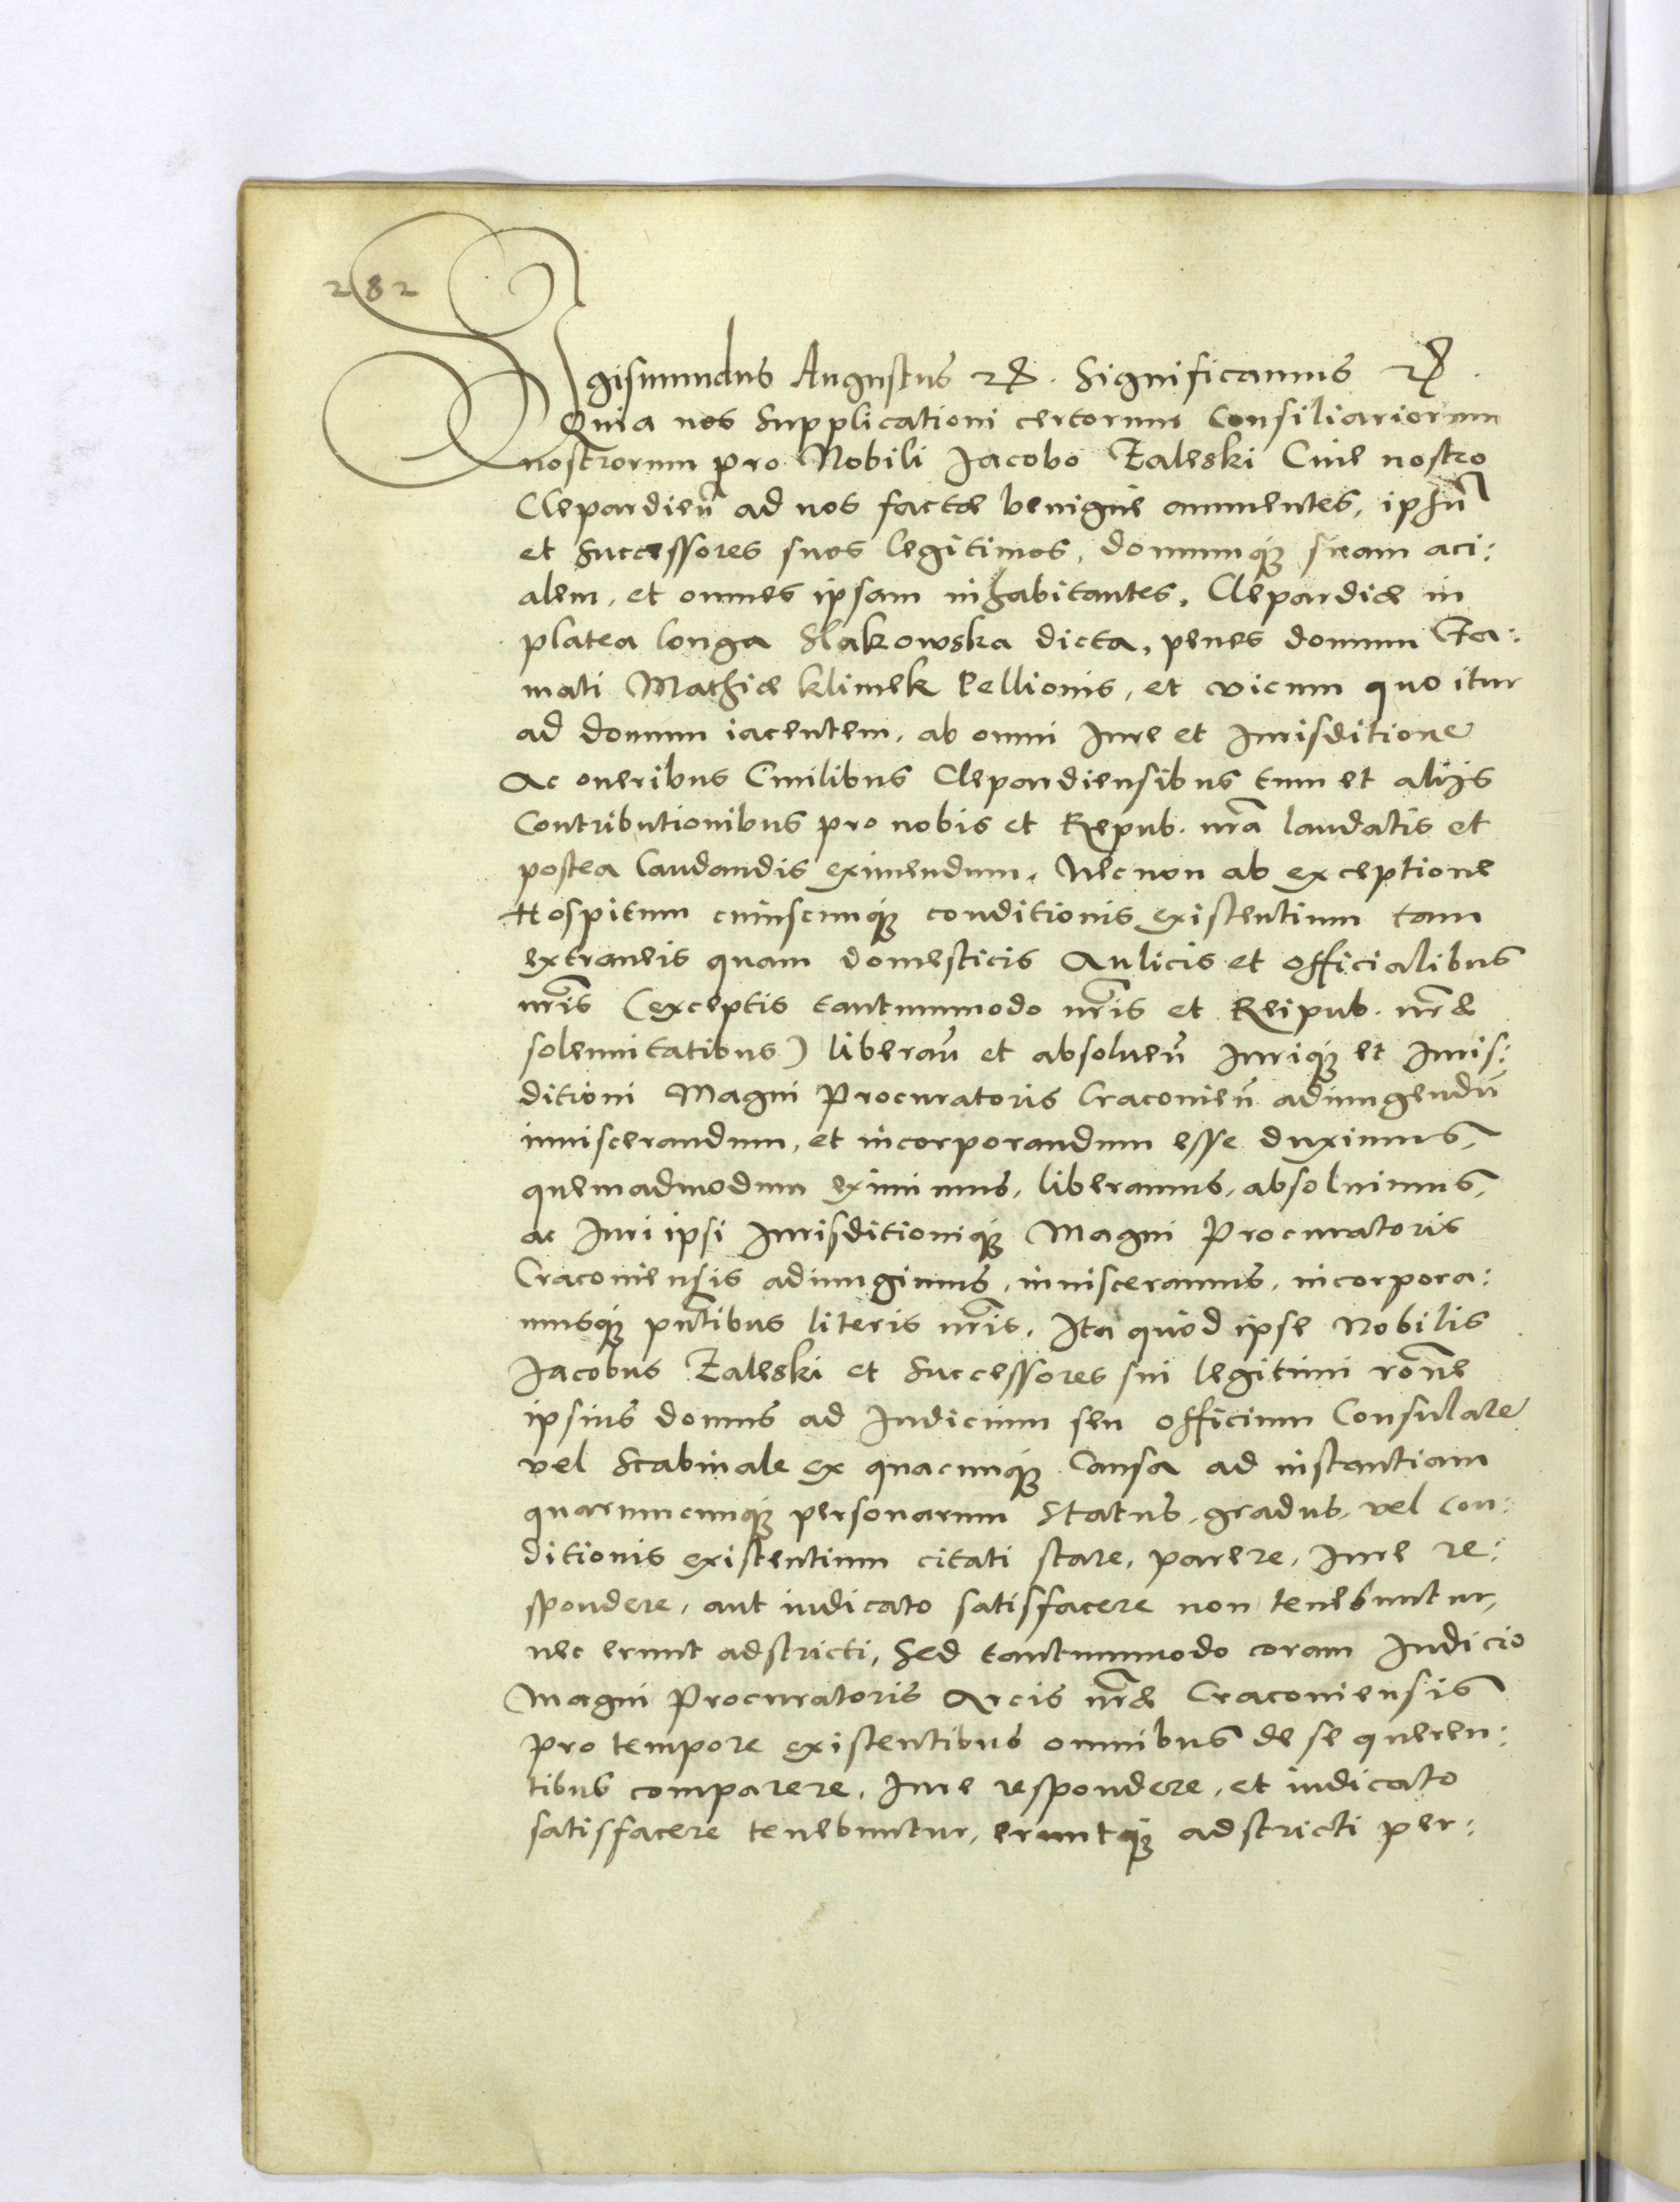 282
Sigismundus Augustus etc. Significamus etc.
Quia nos Supplicationi certorum Consiliariorum
nostrorum pro Nobili Jacobo Zaleski Ciue nostro
Clepardień ad nos factæ benignè annuentes, ipsũ
et Successores suos legitimos, domumq́ꝫ suam aci:
alem, et omnes ipsam inhabitantes, Clepardiæ in
platea longa Slakowska dicta, penes domum Fa:
mati Mathiæ Klimek Pellionis, et vicum quo itur
ad domum iacentem, ab omni Jure et Jurisditione
Ac oneribus Ciuilibus Clepardiensibus tum et alijs
Contributionibus pro nobis et Repub. nr̃a laudatis et
postea laudandis eximendum, Nec non ab exceptione
Hospitum cuiuscunq́ꝫ conditionis existentium tam
extraneis quam domesticis Aulicis et officialibus
nr̃is (exceptis tantummodo nr̃is et Reipub. nr̃æ
solennitatibus) liberań et absolueń Juriq́ꝫ et Juris:
ditioni Magni Procuratoris Cracouień adiungendũ
inuiscerandum, et incorporandum esse duximus,
quemadmodum eximimus, liberamus, absoluimus,
ac Juri ipsi Jurisditioniq́ꝫ Magni Procuratoris
Cracouiensis adiungimus, inuisceramus, incorpora:
musq́ꝫ pn̄tibus literis nr̃is, Ita quòd ipse Nobilis
Jacobus Zaleski et Successores sui legitimi rõne
ipsius domus ad Judicium seu officium Consulare
vel Scabinale ex quacunq́ꝫ Causa ad instantiam
quarumcunq́ꝫ personarum Status, gradus, vel con:
ditionis existentium citati stare, parere, Jure re:
spondere, aut iudicato satisfacere non tenebuntur,
nec erunt adstricti, Sed tantummodo coram Judicio
Magni Procuratoris Arcis nr̃æ Cracouiensis
pro tempore existentibus omnibus de se queren:
tibus comparere, Jure respondere, et iudicato
satisfacere tenebuntur, eruntq́ꝫ adstricti per: